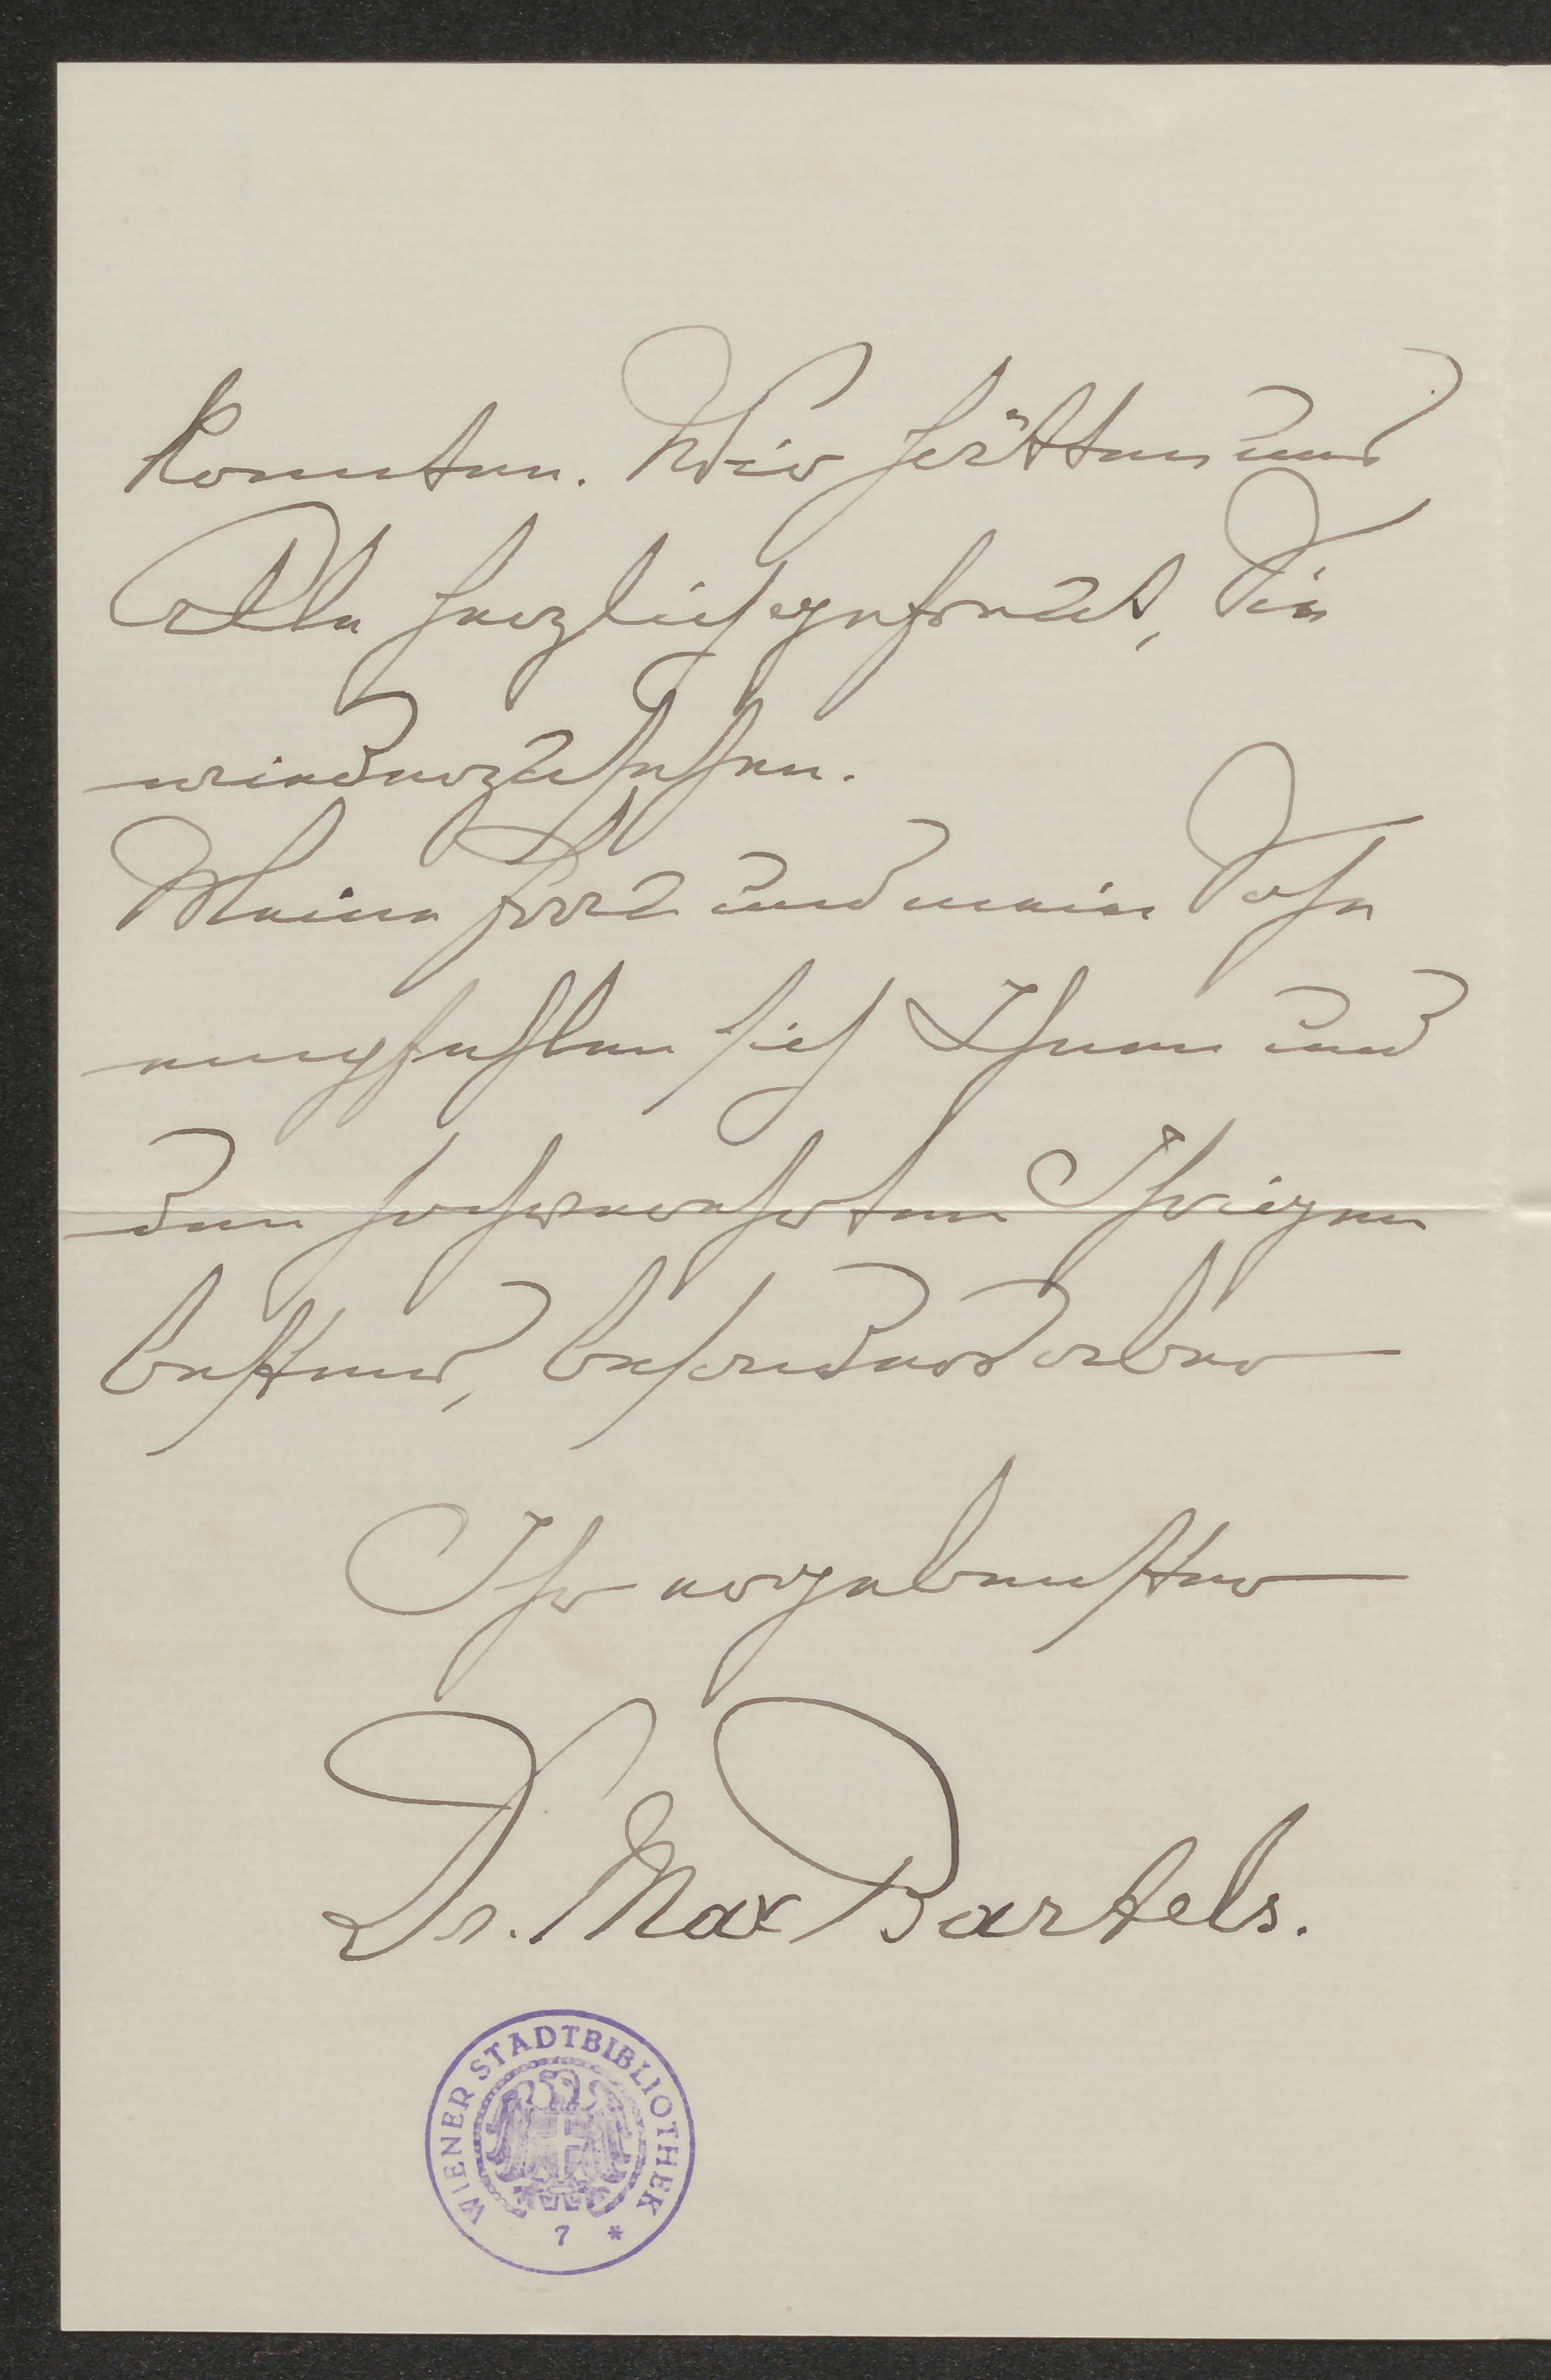 konnten. Wir hätten uns
Alle herzlich gefreut, Sie
wiederzusehen.
Meine Frau und mein Sohn
empfehlen sich Ihnen und
den hochverehrten Ihrigen
bestens, besonders aber
Ihr ergebenster
Dr. Max Bartels.
WIENER STADTBIBLIOTHEK
7 *